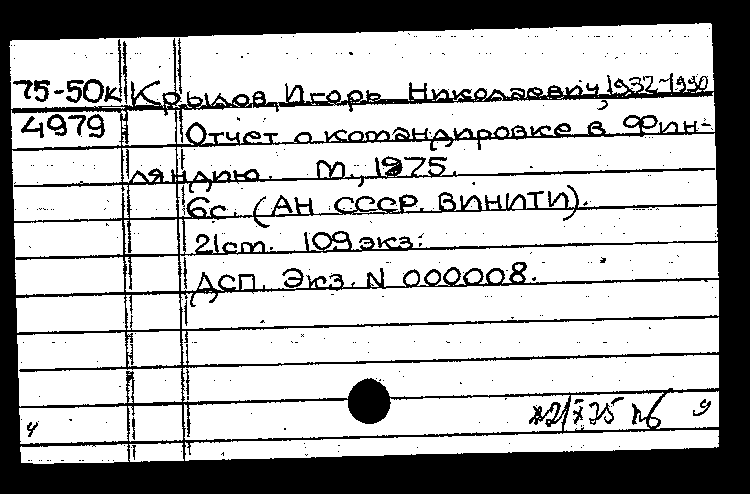 75-50к Крылов, Игорь Николаевич, 1932-1990
4979 Отчет о командировке в Фин-
ляндию. М., 1975.
6с. (АН СССР. ВИНИТИ).
21см. 109 экз.
ДСП. Экз. N 000008.